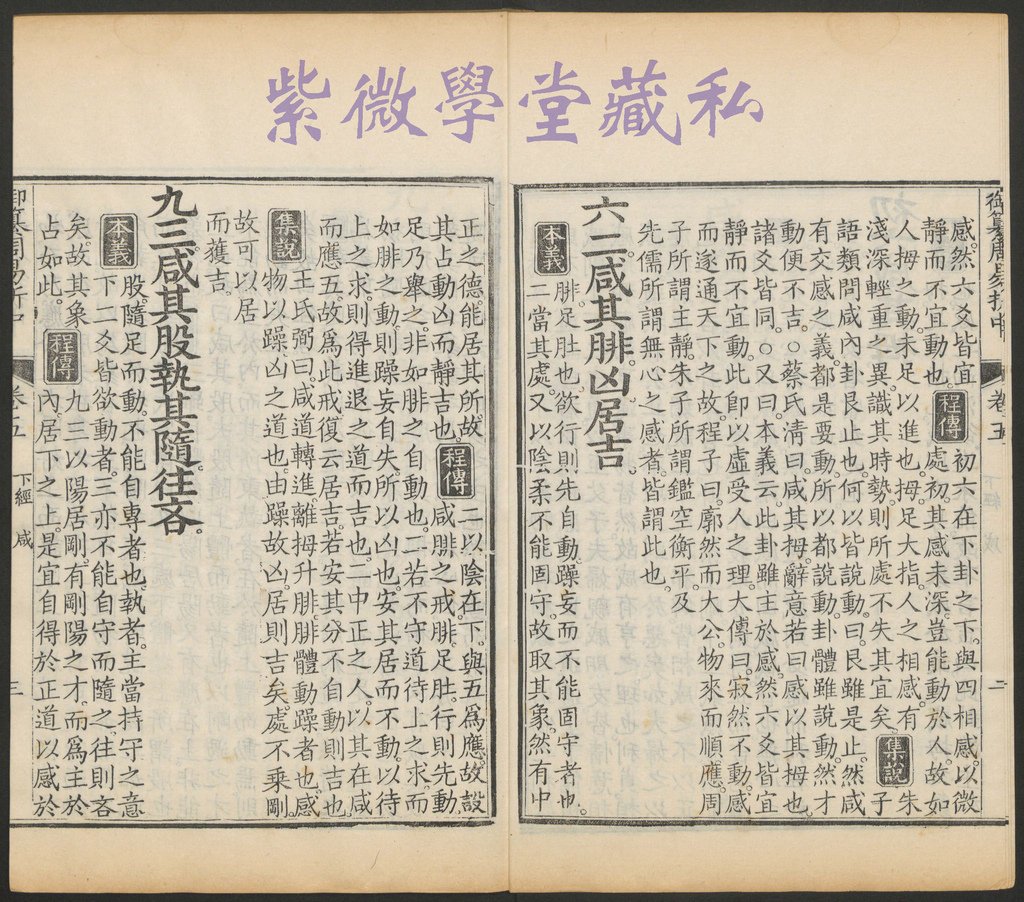 紫微學堂藏私
御纂周易折中
卷五
下經 咸
二
感然六爻皆宜
靜而不宜動也。程傳初六在下卦之下與四相感以微
處初其感未深豈能動於人故如
人拇之動未足以進也拇足大指人之相感有
淺深輕重之異識其時勢則所處不失其宜矣集說朱
子
語類問咸內卦艮止也何以皆說動曰艮雖是止然咸
有交感之義都是要動所以都說動卦體雖說動然才
動便不吉○蔡氏清曰咸其拇辭意若曰感以其拇也
諸爻皆同○又曰本義云此卦雖主於感然六爻皆宜
靜而不宜動此卽以虛受人之理大傳曰寂然不動感
而遂通天下之故程子曰廓然而大公物來而順應周
子所謂主靜朱子所謂鑑空衡平及
先儒所謂無心之感者皆謂此也
六二咸其腓凶居吉
本義腓足肚也欲行則先自動躁妄而不能固守者也
二當其處又以陰柔不能固守故取其象然有中
正之德能居其所故
其占動凶而靜吉也。程傳二以陰在下與五爲應故設
咸腓之戒腓足肚行則先動
足乃舉之非如腓之自動也二若不守道待上之求而
如腓之動則躁妄自失所以凶也安其居而不動以待
上之求則得進退之道而吉也二中正之人以其在咸
而應五故爲此戒復云居吉若安其分不自動則吉也
集說王氏弼曰咸道轉進離拇升腓腓體動躁者也感
物以躁凶之道也由躁故凶居則吉矣處不乘剛
故可以居
而獲吉
九三咸其股執其隨往吝
本義股隨足而動不能自專者也執者主當持守之意
下二爻皆欲動者三亦不能自守而隨之往則吝
矣故其象
占如此。程傳九三以陽居剛有剛陽之才而爲主於
內居下之上是宜自得於正道以感於
卷五
下經 咸
三